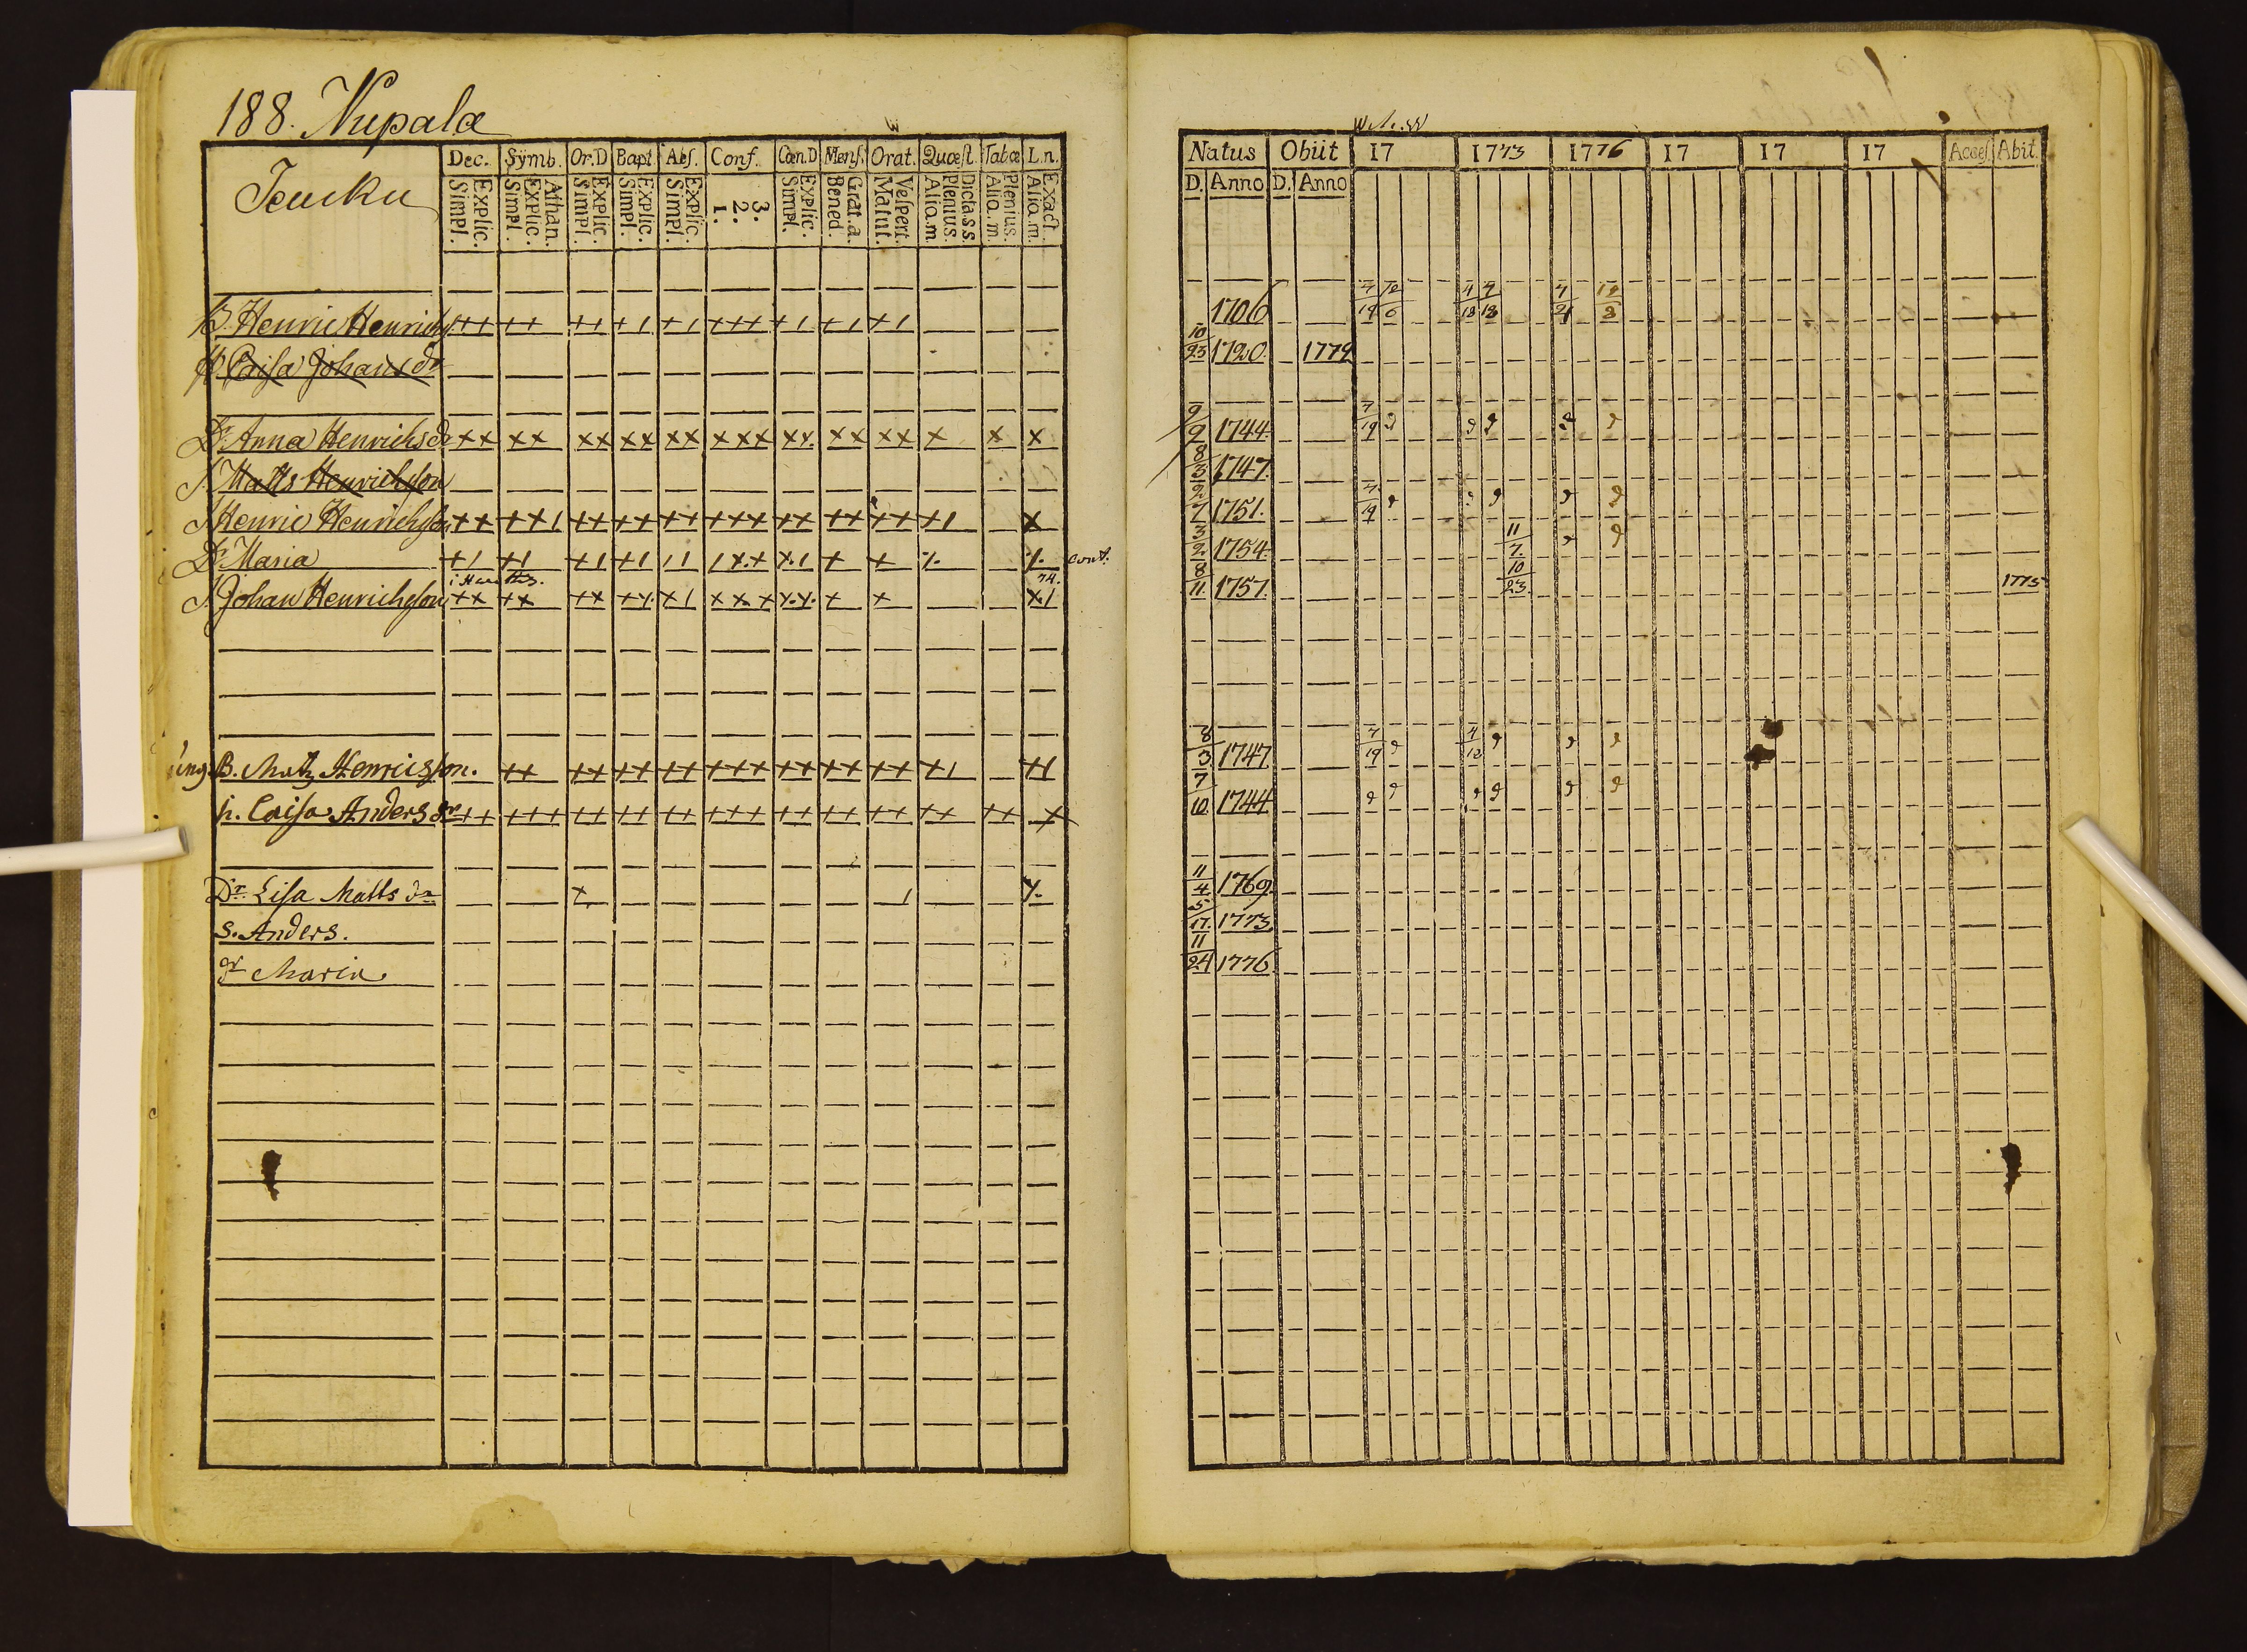 188. Nupala
Dec. Symb. Or.D Bapt. Abs. Conf. Cœn.D Mens. Orat. Quæst. Tabæ L.n.
Explic. Simpl. Athan. Explic. Simpl. Explic. Simpl. Explic. Simpl. Explic. Simpl. 3. 2. 1. Explic. Simpl. Grat.a. Bened. Vespert. Matut. Dicta.s.s. Plenius. Alia.m. Plenius. Alia.m. Exact. Alia.m.
B. Henric Henrichs ++ ++ ++ +1 +1 +++ +1 +1 +1
H. Caisa Johans dr
Dr. Anna Henrichs dr ×× ×× ×× ×× ×× ××× ×× ×× ×× × × ×
S. Matts Henrichson
S. Henric Henrichson ×× ××1 ×× ×× ×× ××× ×× ×× ×× ×1 ×
Dr. Maria +1 +1 +1 +1 11 1×+ ×1 + +
74.
S. Johan Henrichson ×× ×× ×× ×× ×1 ××× ×× × × ×1
B. Matz Henricsson. ++ ++ ++ ++ +++ ++ ++ ++ +1 +1
h. Caisa Anders dr ++ +++ ++ ++ ++ +++ ++ ++ ++ ++ ++ ×
Dr. Lisa Matts dr × 1
S. Anders.
dr Maria
Natus Obiit 17 1773 1776 17 17 17 Acces. Abit.
D. Anno D. Anno
1706 4/19 4/18 4/21
10/23 1720. 1779
9/9 1744. 4/19
8/3 1747.
9/7 1751. 4/19
3/2 1754. 11/7.
8/11. 1757. 10/23. 1775
8/3 1747 4/19 4/12
7/10. 1744
11/4 1769.
5/17. 1773.
11/24 1776